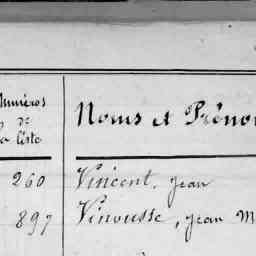 Numéros
de
la liste
Noms et Prénoms
260 Vincent, Jean
897 Vinousse, Jean M